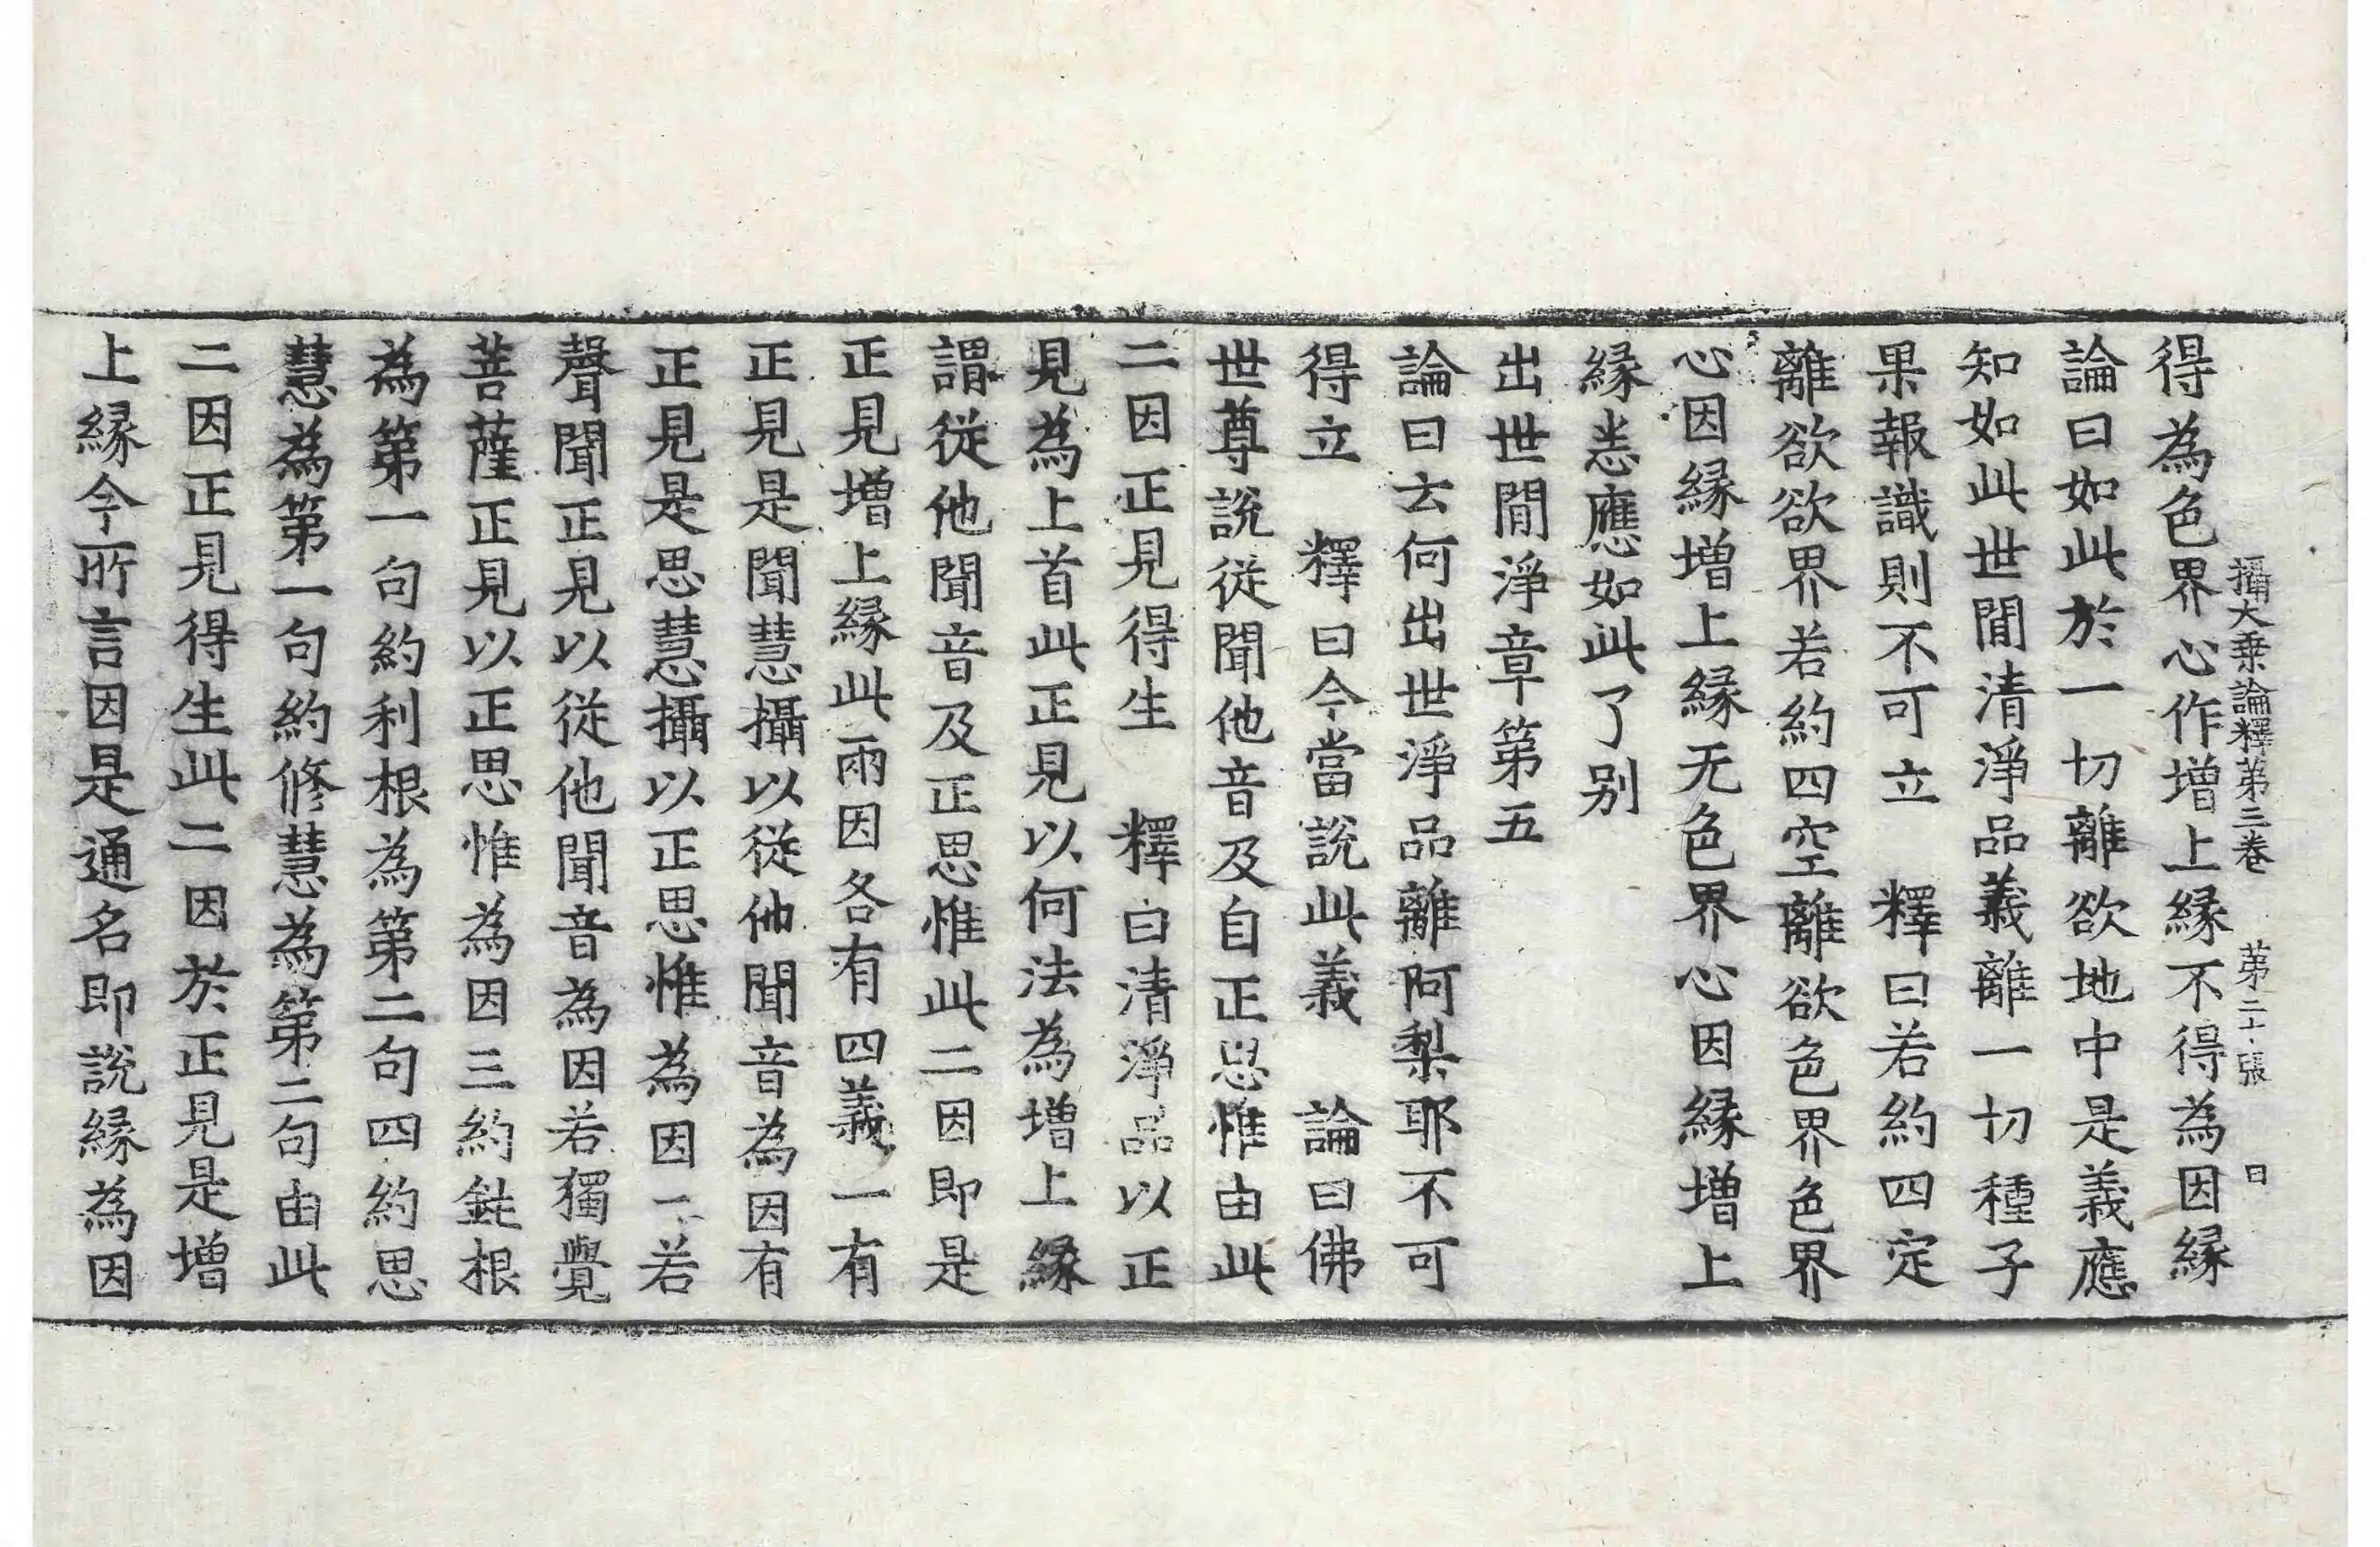 攝大乗論釋苐三巻 苐二十張 曰
得為色界心作增上縁不得為因縁
論曰如此於一切離欲地中是義應
知如此世間清淨品義離一切種子
果報識則不可立 釋曰若約四定
離欲欲界若約四空離欲色界色界
心因縁增上縁无色界心因縁增上
縁恙應如此了别
出世間淨章第五
論曰云何出世淨品離阿梨耶不可
得立 釋曰今當說此義 論曰佛
世尊說從聞他音及自正思惟由此
二因正見得生 釋曰清淨品以正
見為上首此正見以何法為增上縁
謂從他聞音及正思惟此二因即是
正見增上縁此兩因各有四義一有
正見是聞慧攝以從他聞音為因有
正見是思慧攝以正思惟為因二若
聲聞正見以從他聞音為因若獨覺
菩薩正見以正思惟為因三約鈍根
為第一句約利根為第二句四約思
慧為第一句約修慧為第二句由此
二因正見得生此二因於正見是增
上縁今所言因是通名即說縁為因